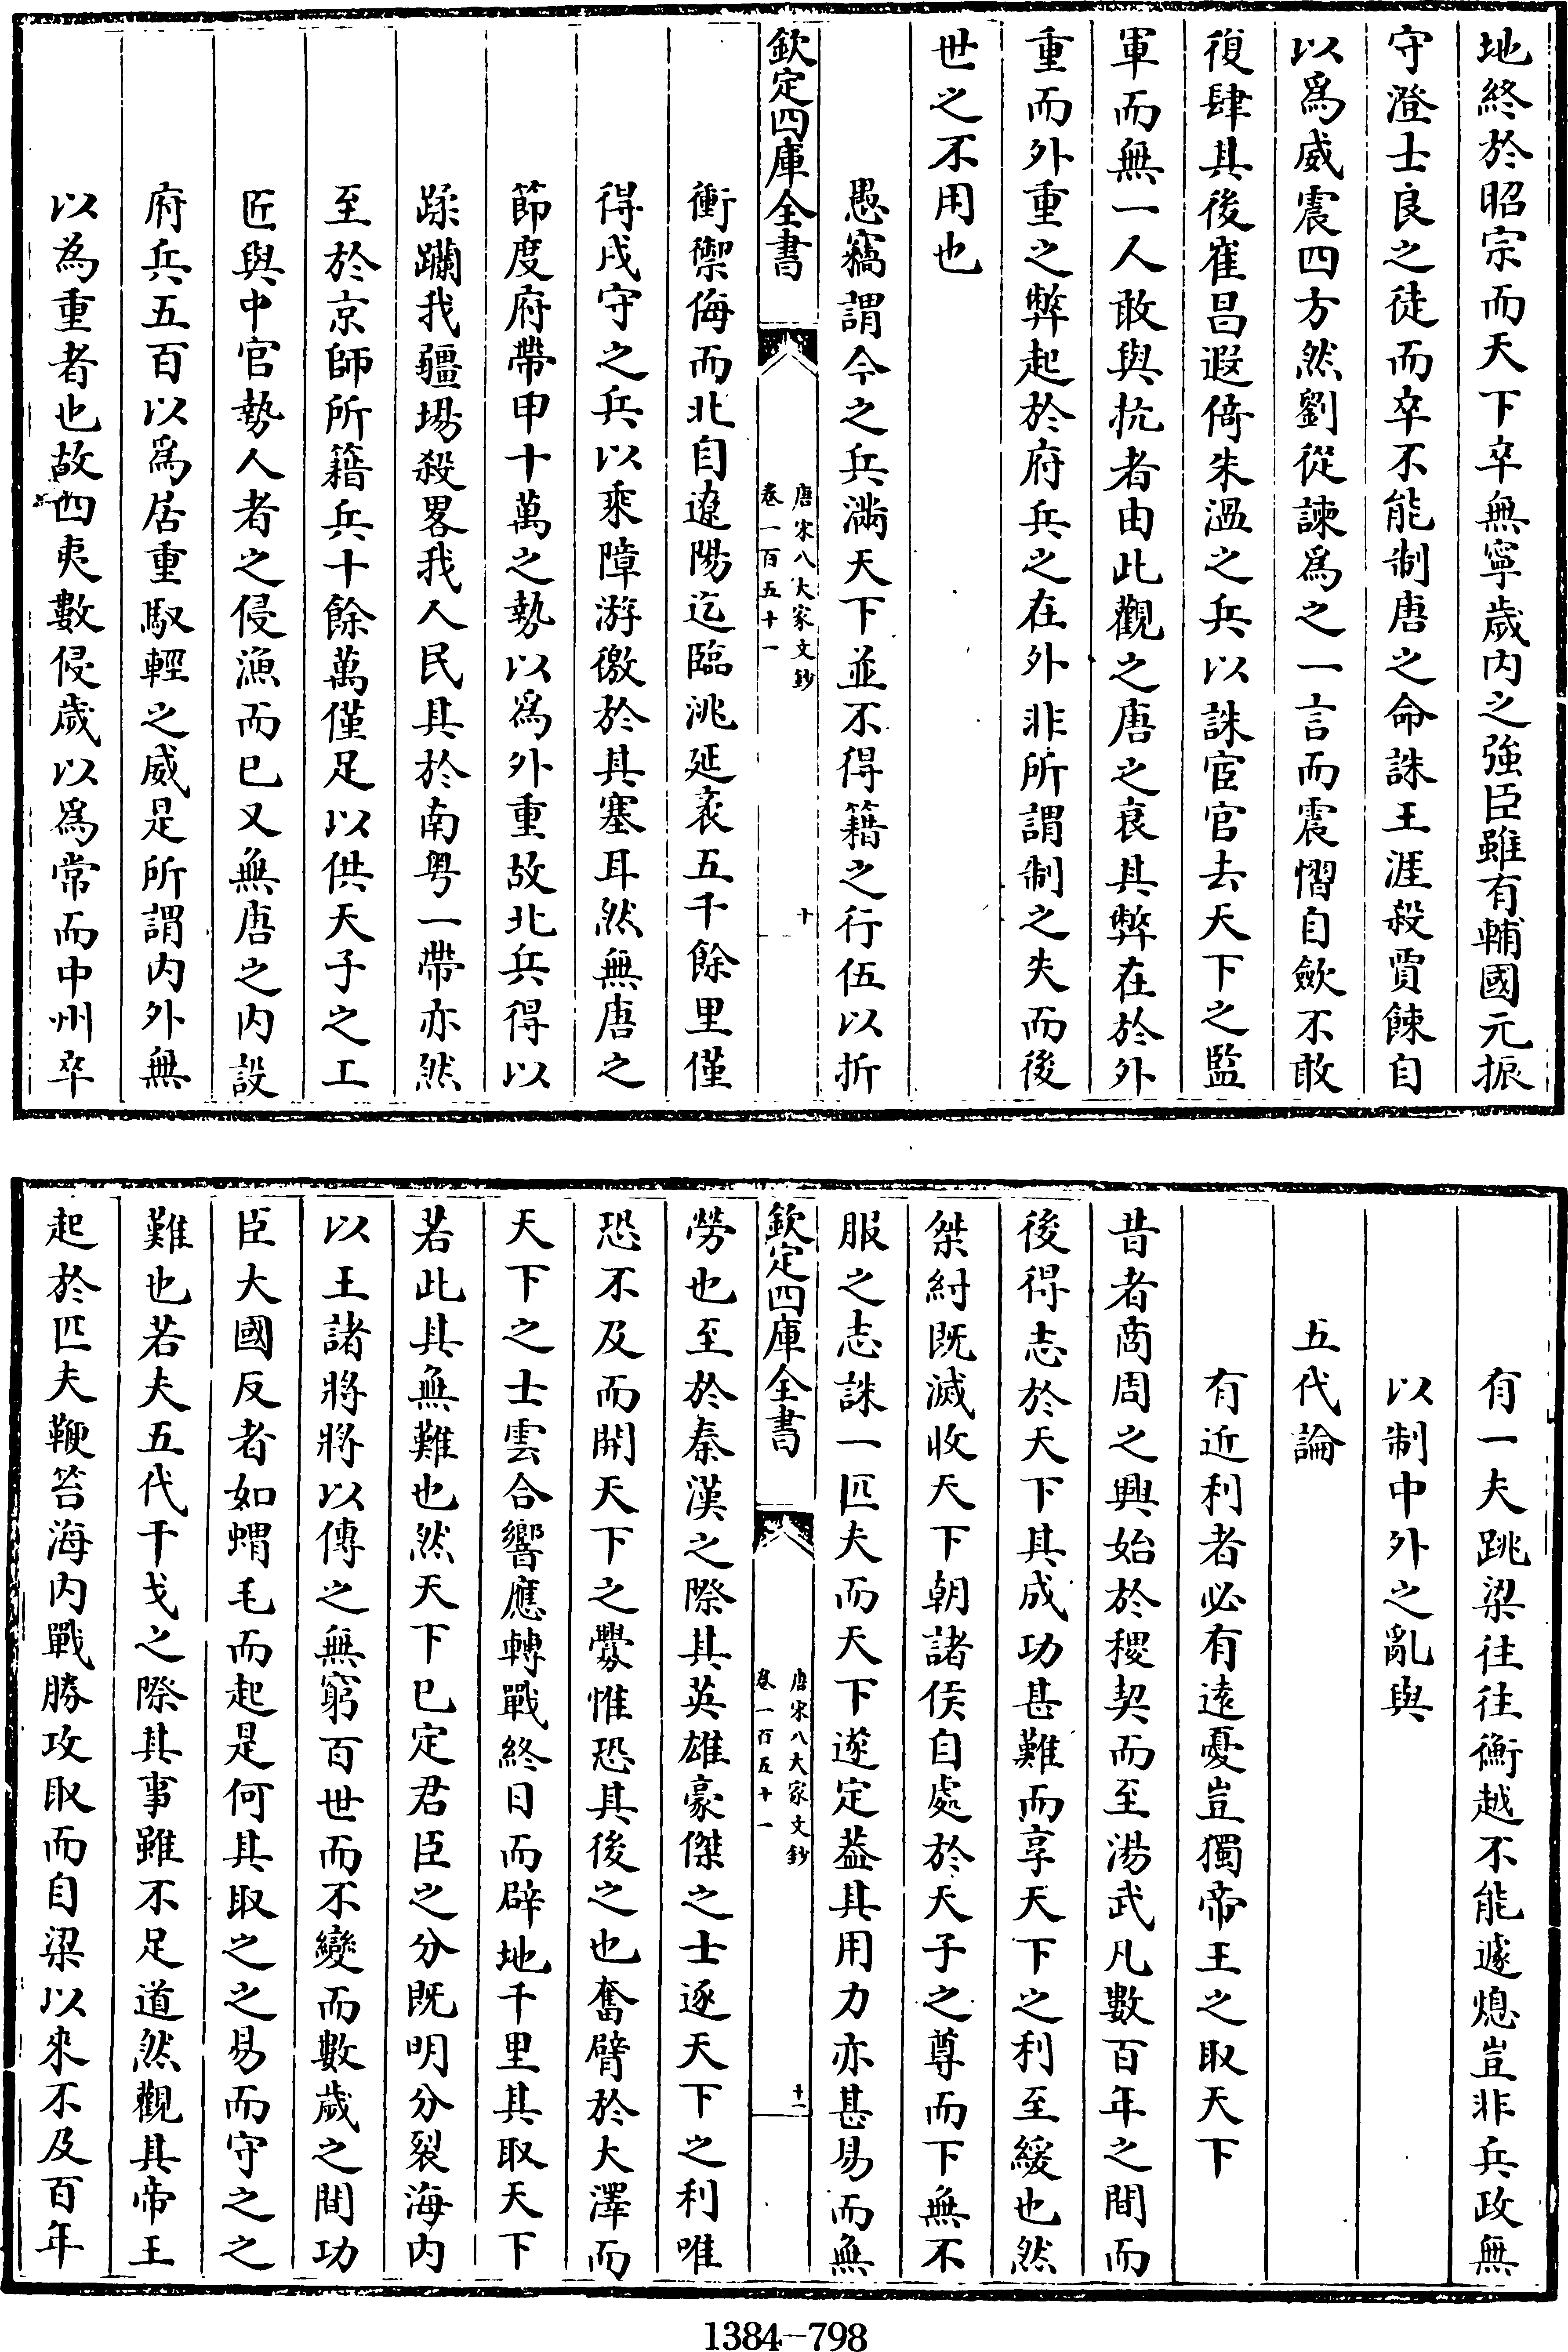 地終於昭宗而天下卒無寧歲内之強臣雖有輔國元振
守澄士良之徒而卒不能制唐之命誅王涯殺賈餗自
以爲威震四方然劉從諫爲之一言而震慴自歛不敢
復肆其後崔昌遐倚朱溫之兵以誅宦官去天下之監
軍而無一人敢與抗者由此觀之唐之衰其弊在於外
重而外重之弊起於府兵之在外非所謂制之失而後
世之不用也
愚竊謂今之兵滿天下並不得籍之行伍以折
欽定四庫全書
唐宋八大家文鈔
卷一百五十一
十
衝禦侮而北自遼陽迄臨洮延袤五千餘里僅
得戍守之兵以乘障游徼於其塞耳然無唐之
節度府帶甲十萬之勢以爲外重故北兵得以
蹂躪我疆場殺畧我人民其於南粤一帶亦然
至於京師所籍兵十餘萬僅足以供天子之工
匠與中官勢人者之侵漁而已又無唐之内設
府兵五百以爲居重馭輕之威是所謂内外無
以為重者也故四夷數侵歲以爲常而中州卒
有一夫跳梁往往衡越不能遽熄豈非兵政無
以制中外之亂與
五代論
有近利者必有遠憂豈獨帝王之取天下
昔者商周之興始於稷契而至湯武凡數百年之間而
後得志於天下其成功甚難而享天下之利至緩也然
桀紂既滅收天下朝諸侯自處於天子之尊而下無不
服之志誅一匹夫而天下遂定葢其用力亦甚易而無
欽定四庫全書
唐宋八大家文鈔
卷一百五十一
十一
勞也至於秦漢之際其英雄豪傑之士逐天下之利唯
恐不及而開天下之釁惟恐其後之也奮臂於大澤而
天下之士雲合響應轉戰終日而辟地千里其取天下
若此其無難也然天下已定君臣之分既明分裂海内
以王諸將將以傳之無窮百世而不變而數歲之間功
臣大國反者如蝟毛而起是何其取之之易而守之之
難也若夫五代干戈之際其事雖不足道然觀其帝王
起於匹夫鞭笞海内戰勝攻取而自梁以來不及百年
1384-798